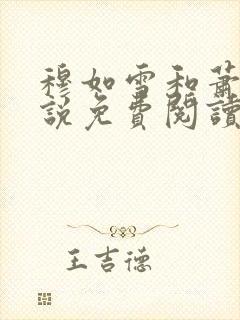 穆如雪和蕭
說免費閱讀
王吉德